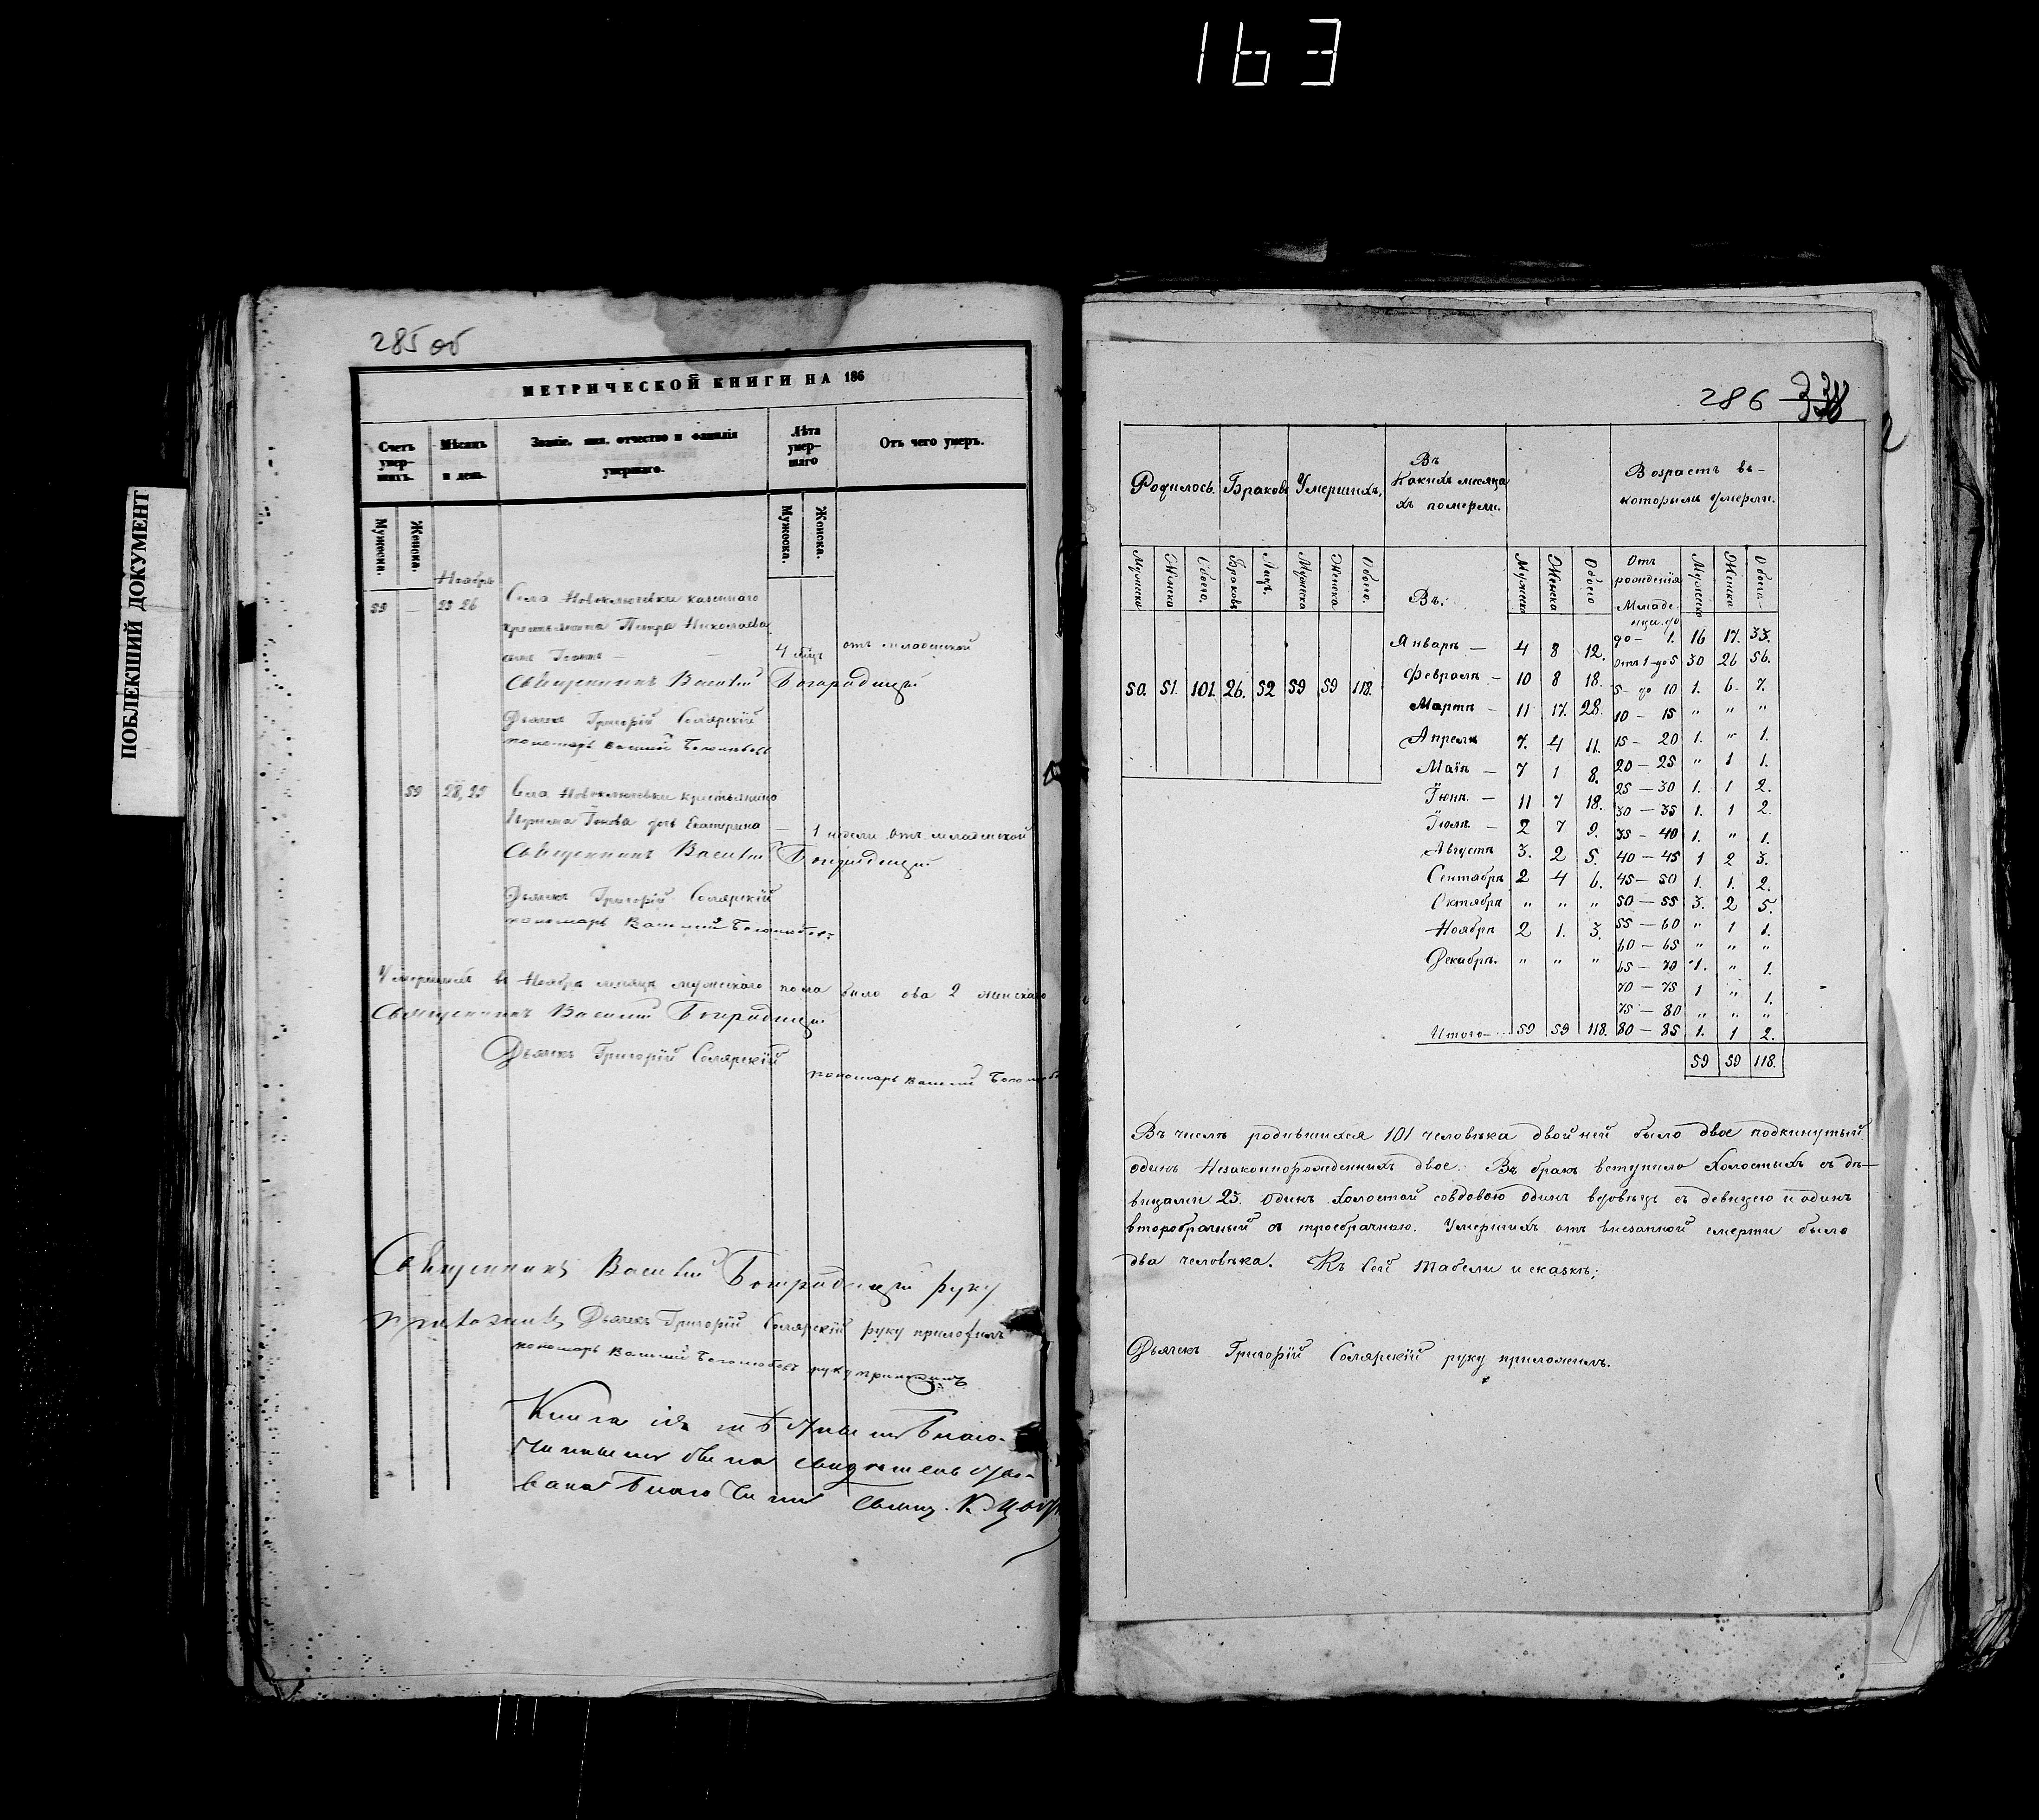 163
ПОБЛЕКШИЙ ДОКУМЕНТ
285 об
МЕТРИЧЕСКОЙ КНИГИ НА 186
Счетъ умер-шихъ.
Мѣсяцъ и день.
Званіе, имя, отчество и фамилія умершаго.
Лѣта умер-шаго
Отъ чего умеръ.
Мужеска. Женска. Мужеска. Женска.
Ноябрь
59 — 23 26 Села Новоключевки казеннаго
крестьянина Петра Николаева
сынъ — — 4 мѣц. отъ младенской
Священникъ Василій Богородицкій
Дьячекъ Григорій Солярскій
пономарь Василий Боголюбовъ
59 28, 29 Села Новоключевки крестьянина
дочь Екатерина — 1 недели отъ младенской
Священникъ Василій Богородицкій
Дьячекъ Григорій Солярскій
пономарь Василий Боголюбовъ
Умершихъ въ Ноябре месяце мужескаго пола было два 2 женскаго
Священникъ Василій Богородицкій
Дьячекъ Григорій Солярскій
пономарь Василий
Священникъ Василій Богородицкій руку
приложилъ Дьячекъ Григорій Солярскій руку приложилъ
пономарь Василий Боголюбовъ руку приложилъ
Книга сія
была свидетельство-
вана Свящ. К.
286 338
Родилось. Браковъ Умершихъ,
Въ Какихъ месяца хъ померли.
Возрастъ въ — которыхъ умерли.
Мужеска Женска Обоего. Браковъ Лицъ. Мужеска Женска Обоего.
Въ: Мужеска Женска Обоего
Отъ рожденія Младе-нца до Мужеска Женска Обоего
50. 51. 101. 26. 52 59 59 118.
Январь — 4 8 12. до — 1. 16 17. 33.
Февраль — 10 8 18. Отъ 1-до 5 30 26 56.
Мартъ — 11 17. 28. 5- до 10 1. 6. 7.
Апрель 7. 4 11. 10 — 15 " " "
Май — 7 1 8. 15 — 20 1. " 1.
Іюнь — 11 7 18. 20 — 25 " 1 1.
Іюль — 2 7 9. 25 — 30 1. 1 2.
Августъ 3. 2 5. 30 — 35 1. 1 2.
Сентябрь 2 4 6. 35 — 40 1. " 1.
Октябрь " " " 40 — 45 1 2 3.
Ноябрь 2 1. 3. 45 — 50 1. 1. 2.
Декабрь. " " " 50 — 55 3. 2 5.
55 — 60 " 1 1.
60 — 65 " " "
65 — 70 1. " 1.
70 — 75 1 " 1.
75 — 80 " " "
Итого — 59 59 118. 80 — 85 1. 1 2.
59 59 118.
Въ числѣ родившихся 101 человѣка двойней было двое подкинутый
одинъ Незаконнорожденныхъ двое. Въ бракъ вступило Холостыхъ съ дѣ—
вицами 23. одинъ Холостой совдовою одинъ вдовецъ съ девицею и одинъ
второбрачный съ троебрачною. Умершихъ отъ внезапной смерти было
два человѣка. Къ Сей табели и сказкѣ;
Дьячекъ Григорій Солярскій руку приложилъ.